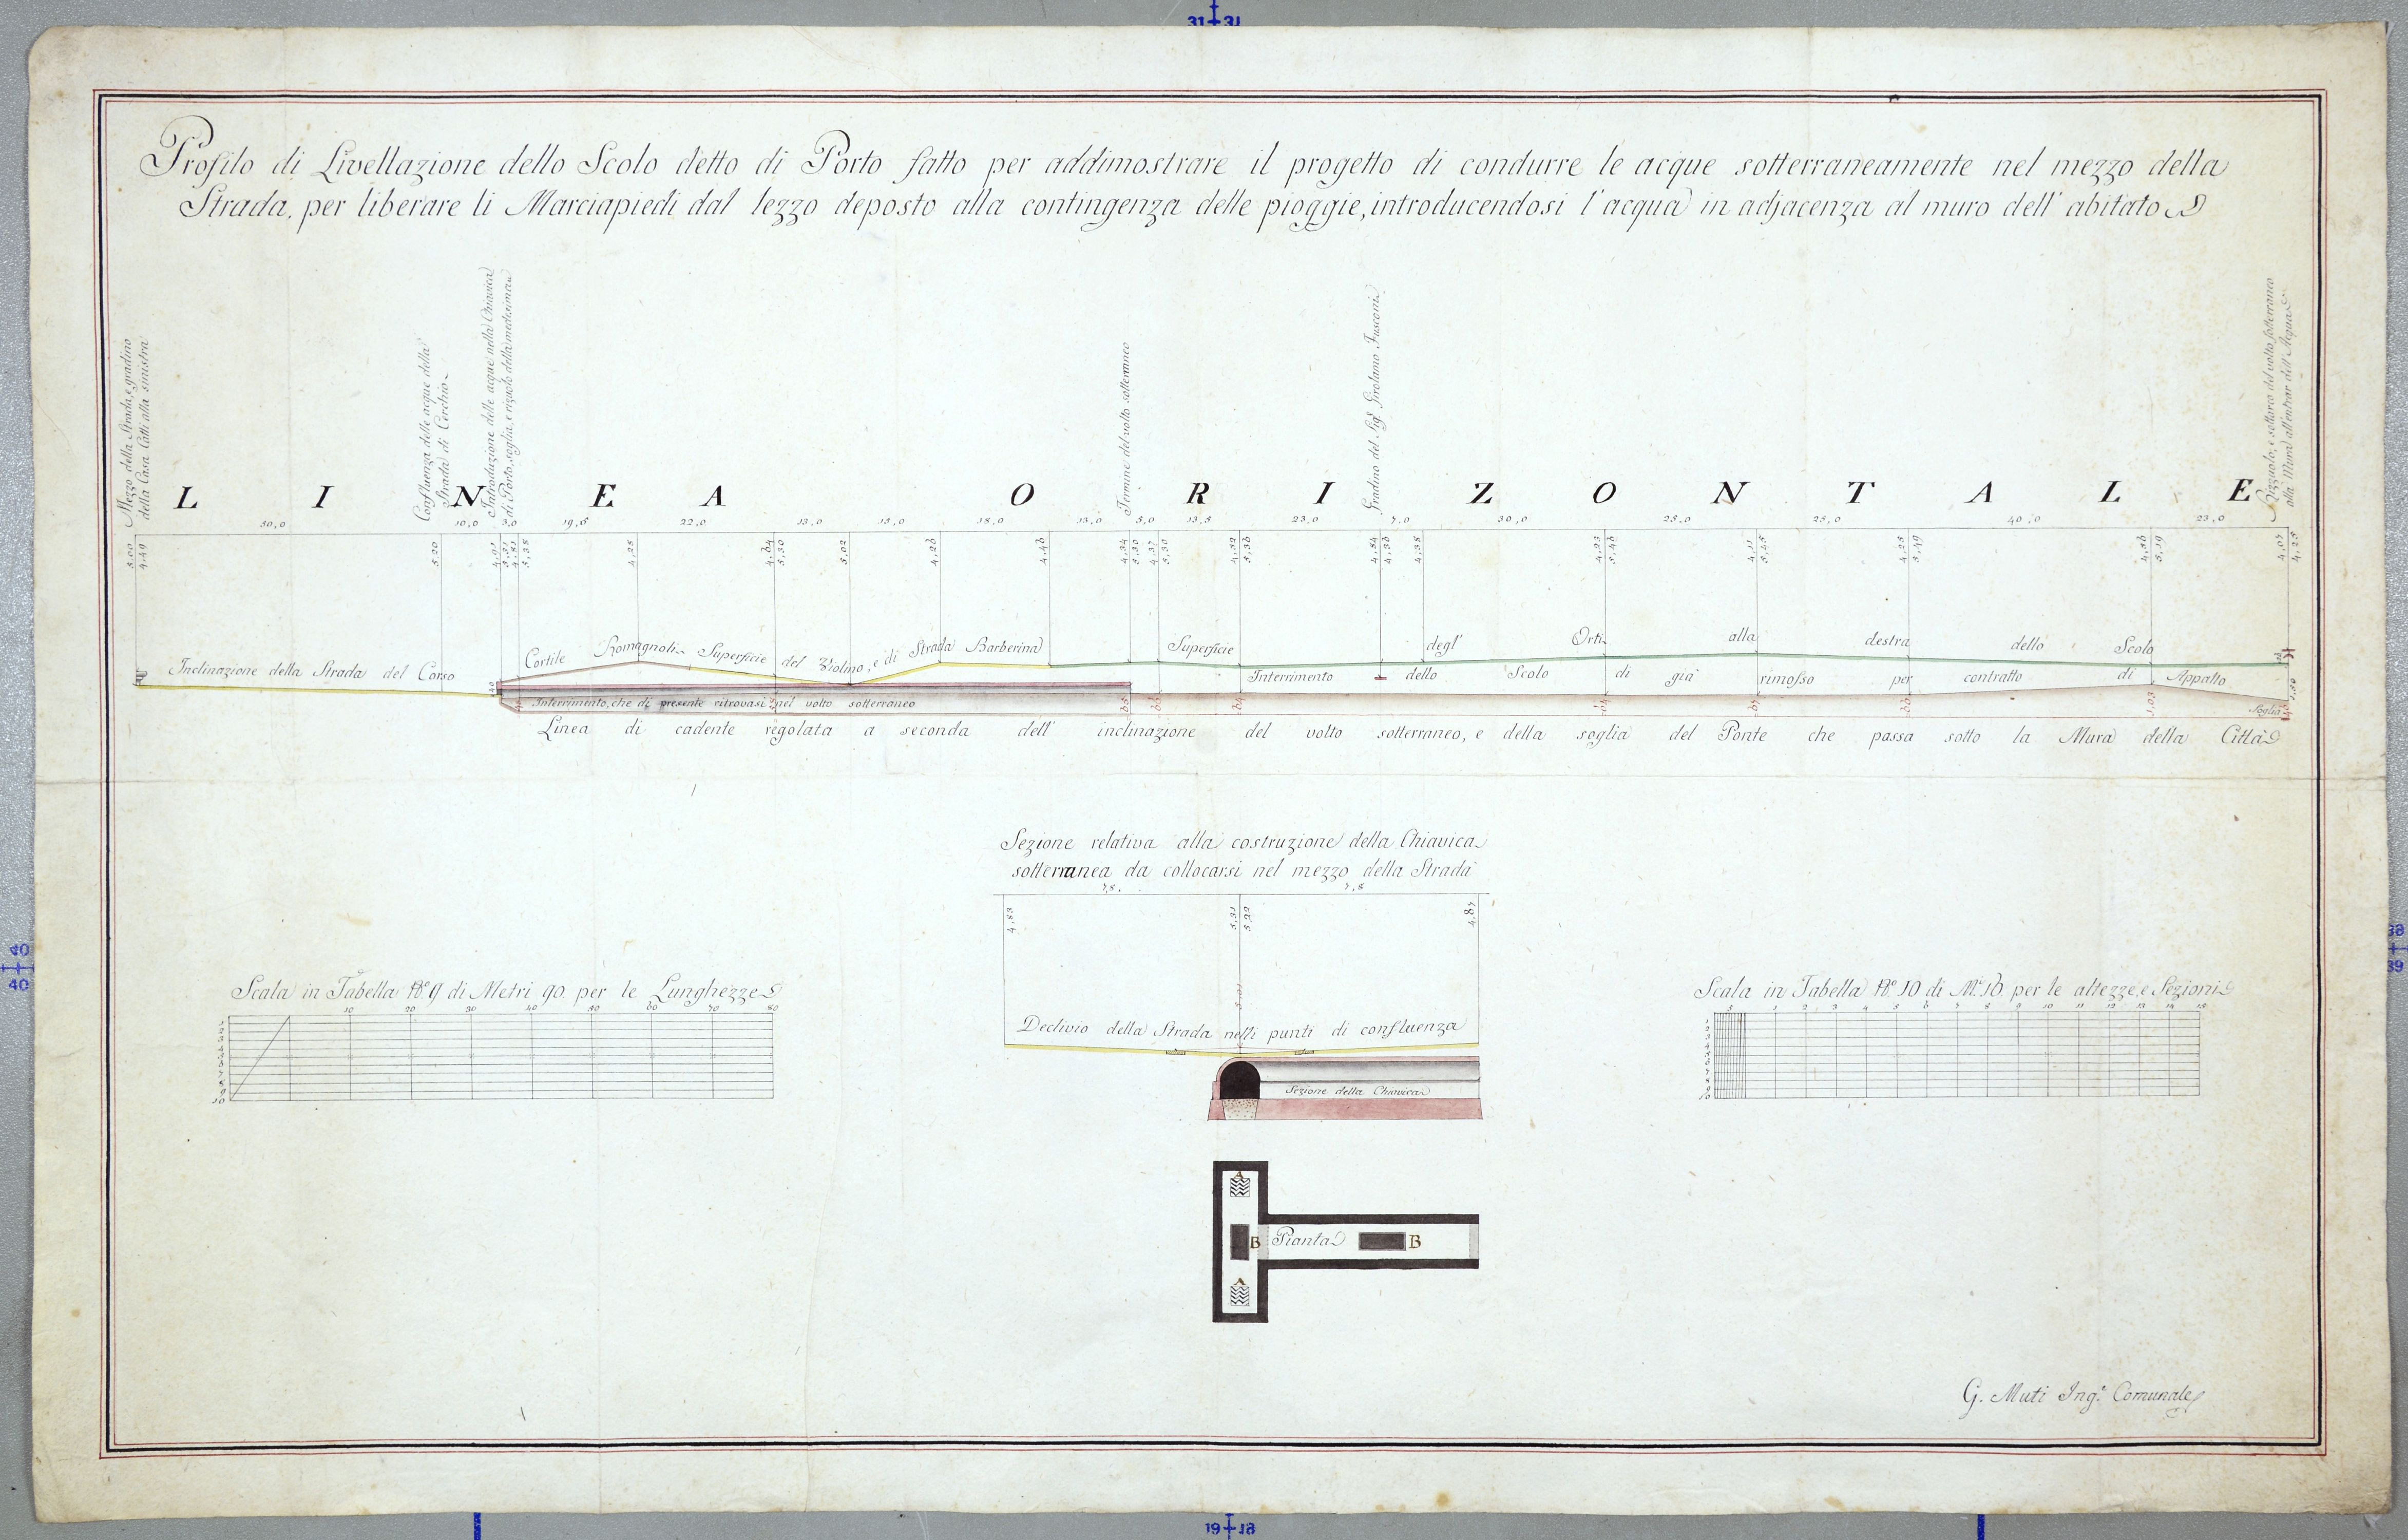 31 31
Profilo di Livellazione dello Scolo detto di Porto fatto per addimostrare il progetto di condurre le acque sotterraneamente nel mezzo della
Strada, per liberare li Marciapiedi dal lezzo deposto alla contingenza delle pioggie, introducendosi l'acqua in adjacenza al muro dell' abitato
Mezzo della Strada, e gradino
della Casa Catti alla sinistra
Confluenza delle acque della
Strada di Cerchio
Introduzione delle acque nella Chiavica
di Porto, soglia, e rigolo della medesima
Termine del volto sotterraneo
Gradino del Sig.r Girolamo Fusconi
Pizzuolo, e sottarco del volto sotterraneo
alla Mura all'entrar dell'Acqua
LINEA ORIZONTALE
50,0 10,0 3,0 19,6 22,0 13,0 15,0 18,0 13,0 5,0 13,5 23,0 7,0 30,0 25,0 25,0 40,0 23,0
5,00 4,49 5,20 4,91 5,21 4,81 5,35 4,25 4,64 5,30 5,02 4,26 4,46 4,34 5,30 4,37 5,30 4,52 5,36 4,54 4,36 4,35 4,23 5,46 4,11 5,45 4,25 5,49 4,56 5,19 4,07 4,25
Inclinazione della Strada del Corso
Cortile Romagnoli Superficie del Violino, e di Strada Barberina
Superficie degl' Orti alla destra dello Scolo
Interrimento dello Scolo di già rimosso per contratto di Appalto
Interrimento, che di presente ritrovasi nel volto sotterraneo
Soglia
Linea di cadente regolata a seconda dell' inclinazione del volto sotterraneo, e della soglia del Ponte che passa sotto la Mura della Città
Sezione relativa alla costruzione della Chiavica
sotterranea da collocarsi nel mezzo della Strada
7,8. 7,8
4,83 5,31 5,22 4,87
Declivio della Strada nelli punti di confluenza
Sezione della Chiavica
40 40
38 39
Scala in Tabella N.º 9 di Metri 90 per le Lunghezze
10 20 30 40 50 60 70 80
1
2
3
4
5
6
7
8
9
10
Scala in Tabella N.º 10 di M.i 10 per le altezze, e Sezioni
5 1 2 3 4 5 6 7 8 9 10 11 12 13 14 15
1
2
3
4
5
6
7
8
9
10
A
B Pianta B
A
G. Muti Ing.e Comunale
19 18